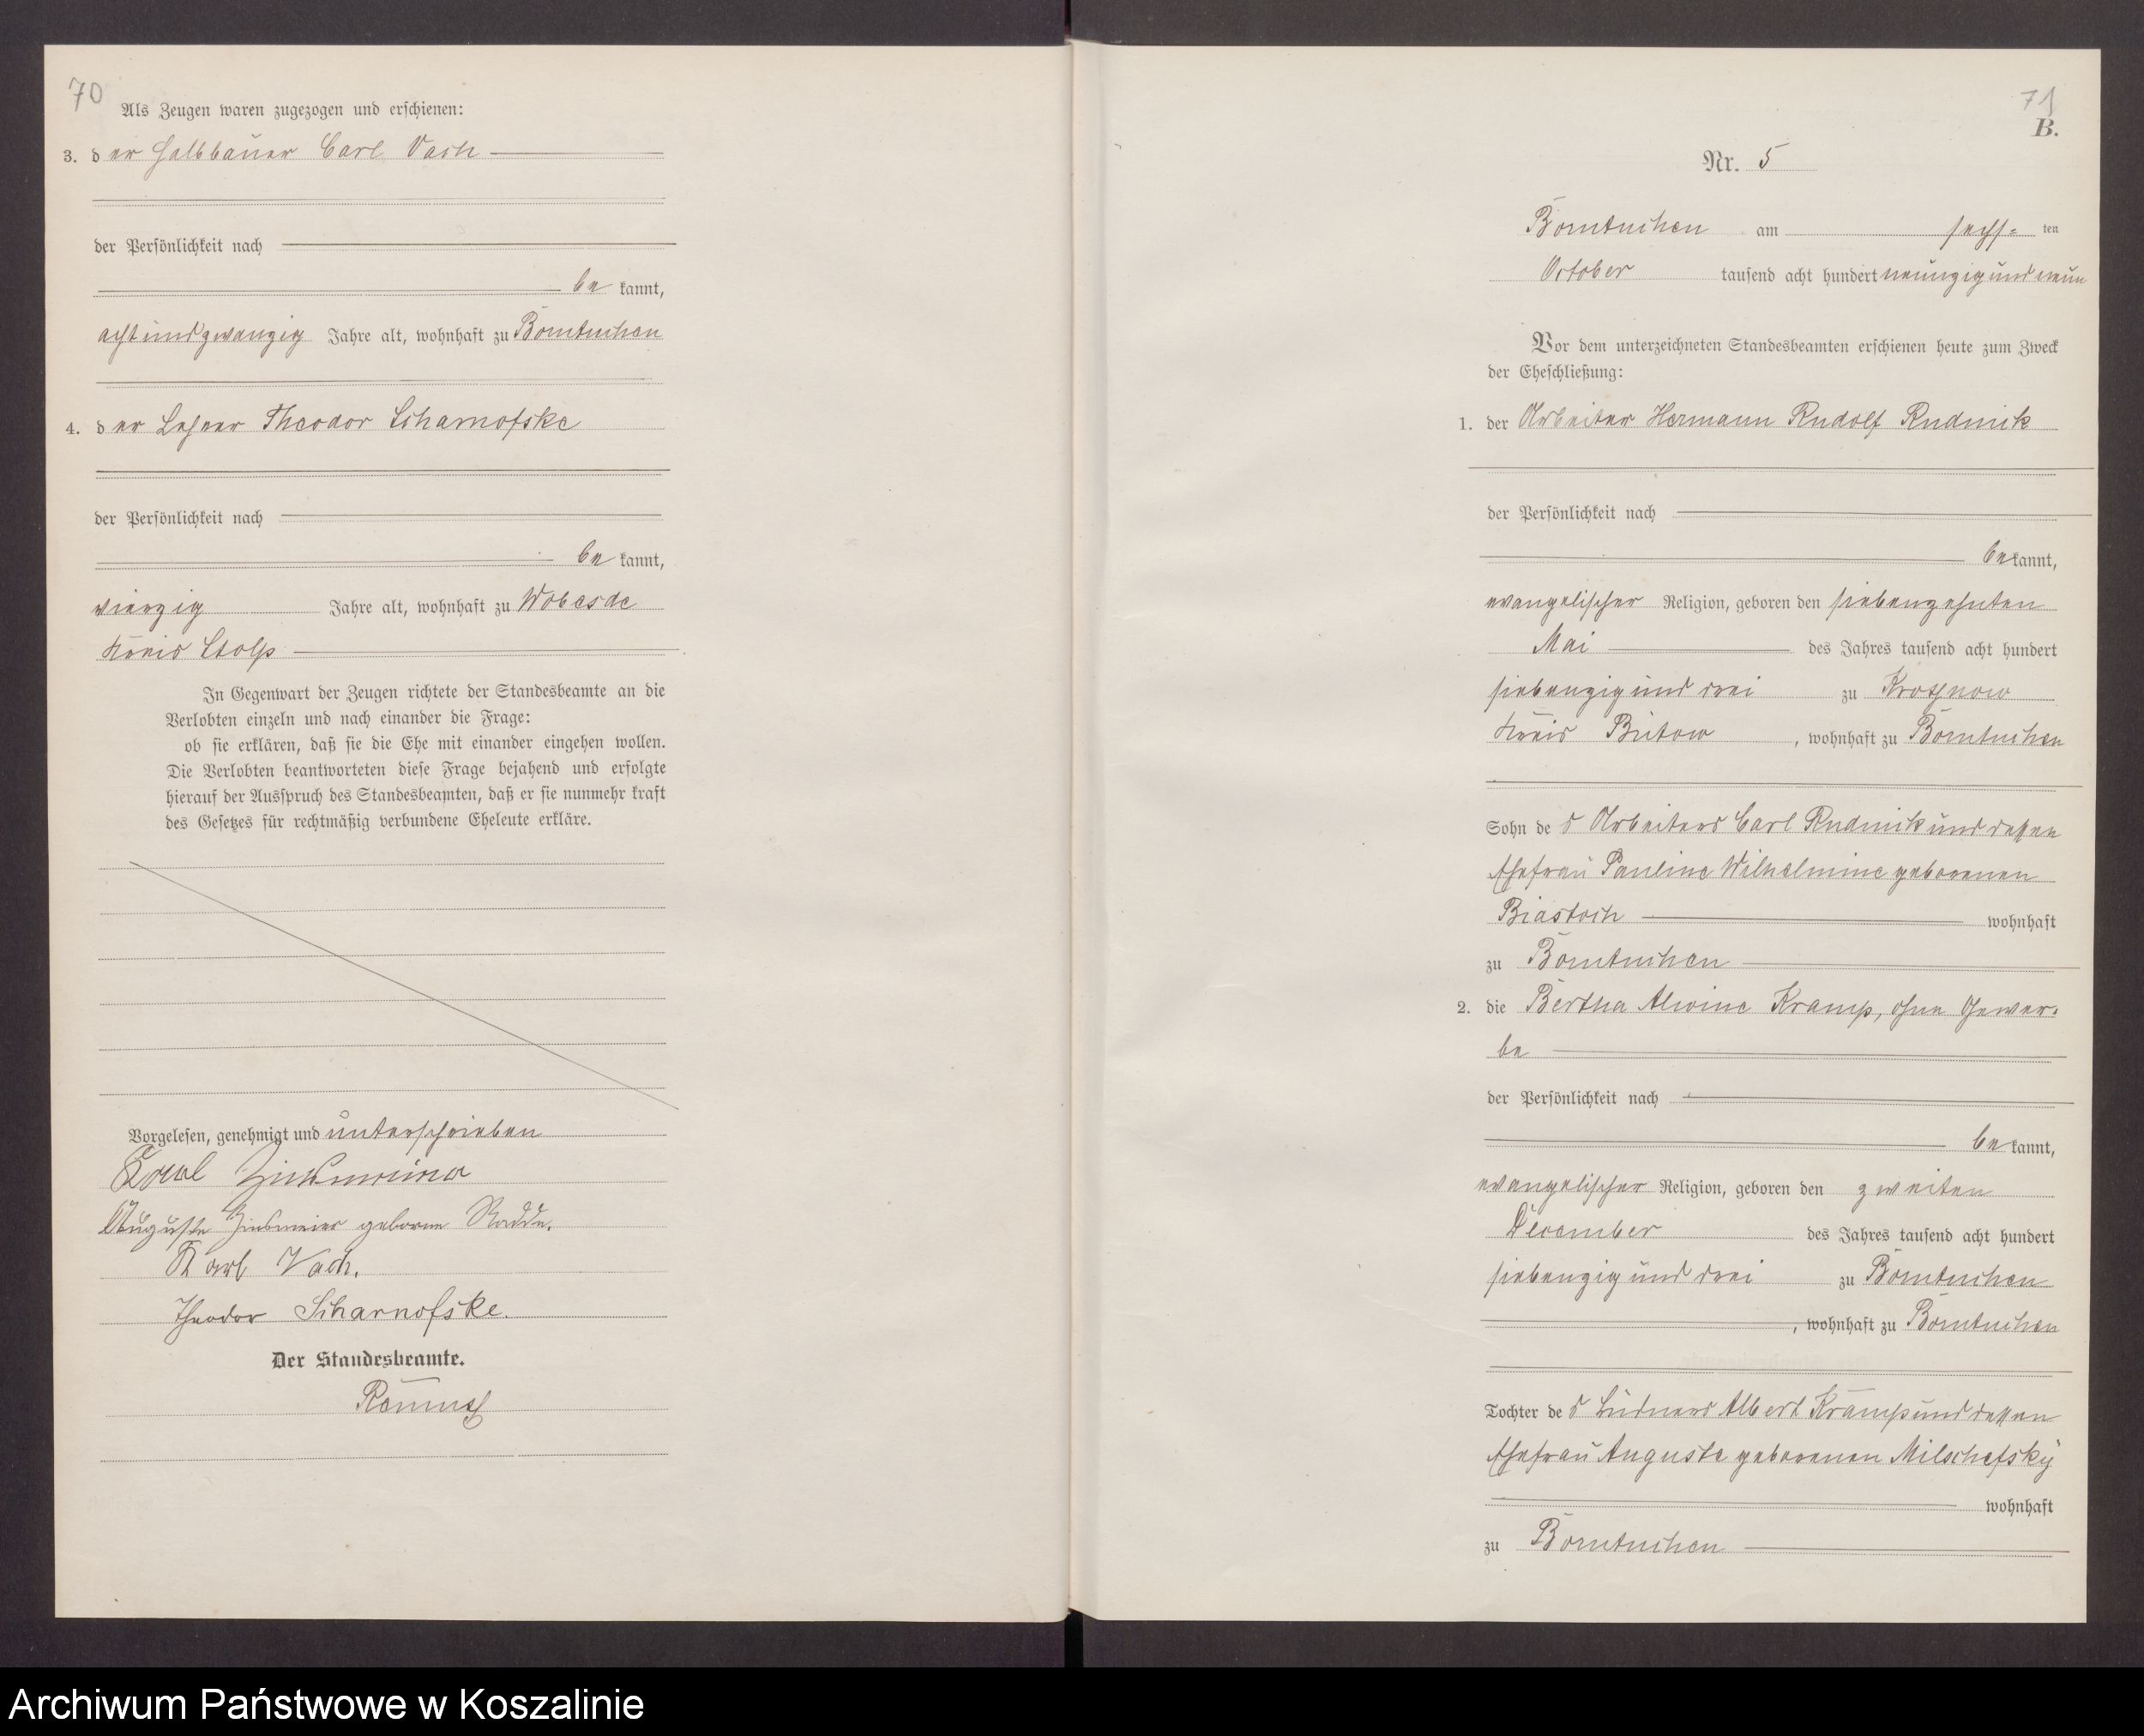 70
Als Zeugen waren zugezogen und erschienen:
3. der Halbbauer Carl Vach
der Persönlichkeit nach
be kannt,
achtundzwanzig Jahre alt, wohnhaft zu Borntuchen
4. der Lehrer Theodor Scharnofske
der Persönlichkeit nach
be kannt,
vierzig Jahre alt, wohnhaft zu Wobesde
Kreis Stolp
In Gegenwart der Zeugen richtete der Standesbeamte an die
Verlobten einzeln und nach einander die Frage:
ob sie erklären, daß sie die Ehe mit einander eingehen wollen.
Die Verlobten beantworteten diese Frage bejahend und erfolgte
hierauf der Ausspruch des Standesbeamten, daß er sie nunmehr kraft
des Gesetzes für rechtmäßig verbundene Eheleute erkläre.
Vorgelesen, genehmigt und unterschrieben
Karl
Auguste Zinsmeier geborne Radde.
Karl Vach.
Theodor Scharnofske.
Der Standesbeamte.
71
B.
Nr. 5
Borntuchen am sechs= ten
October tausend acht hundert neunzig und neun
Vor dem unterzeichneten Standesbeamten erschienen heute zum Zweck
der Eheschließung:
1. der Arbeiter Hermann Rudolf Rudnick
der Persönlichkeit nach
be kannt,
evangelischer Religion, geboren den siebenzehnten
Mai des Jahres tausend acht hundert
siebenzig und drei zu Krosznow
Kreis Bütow, wohnhaft zu Borntuchen
Sohn des Arbeiters Carl Rudnick und dessen
Ehefrau Pauline Wilhelmine geborenen
Biastoch wohnhaft
zu Borntuchen
2. die Bertha Alwine Kramp, ohne Gewer=
be
der Persönlichkeit nach
be kannt,
evangelischer Religion, geboren den zweiten
December des Jahres tausend acht hundert
siebenzig und drei zu Borntuchen
, wohnhaft zu Borntuchen
Tochter des Büdners Albert Kramp und dessen
Ehefrau Auguste geborenen Milschefsky
wohnhaft
zu Borntuchen
Archiwum Państwowe w Koszalinie